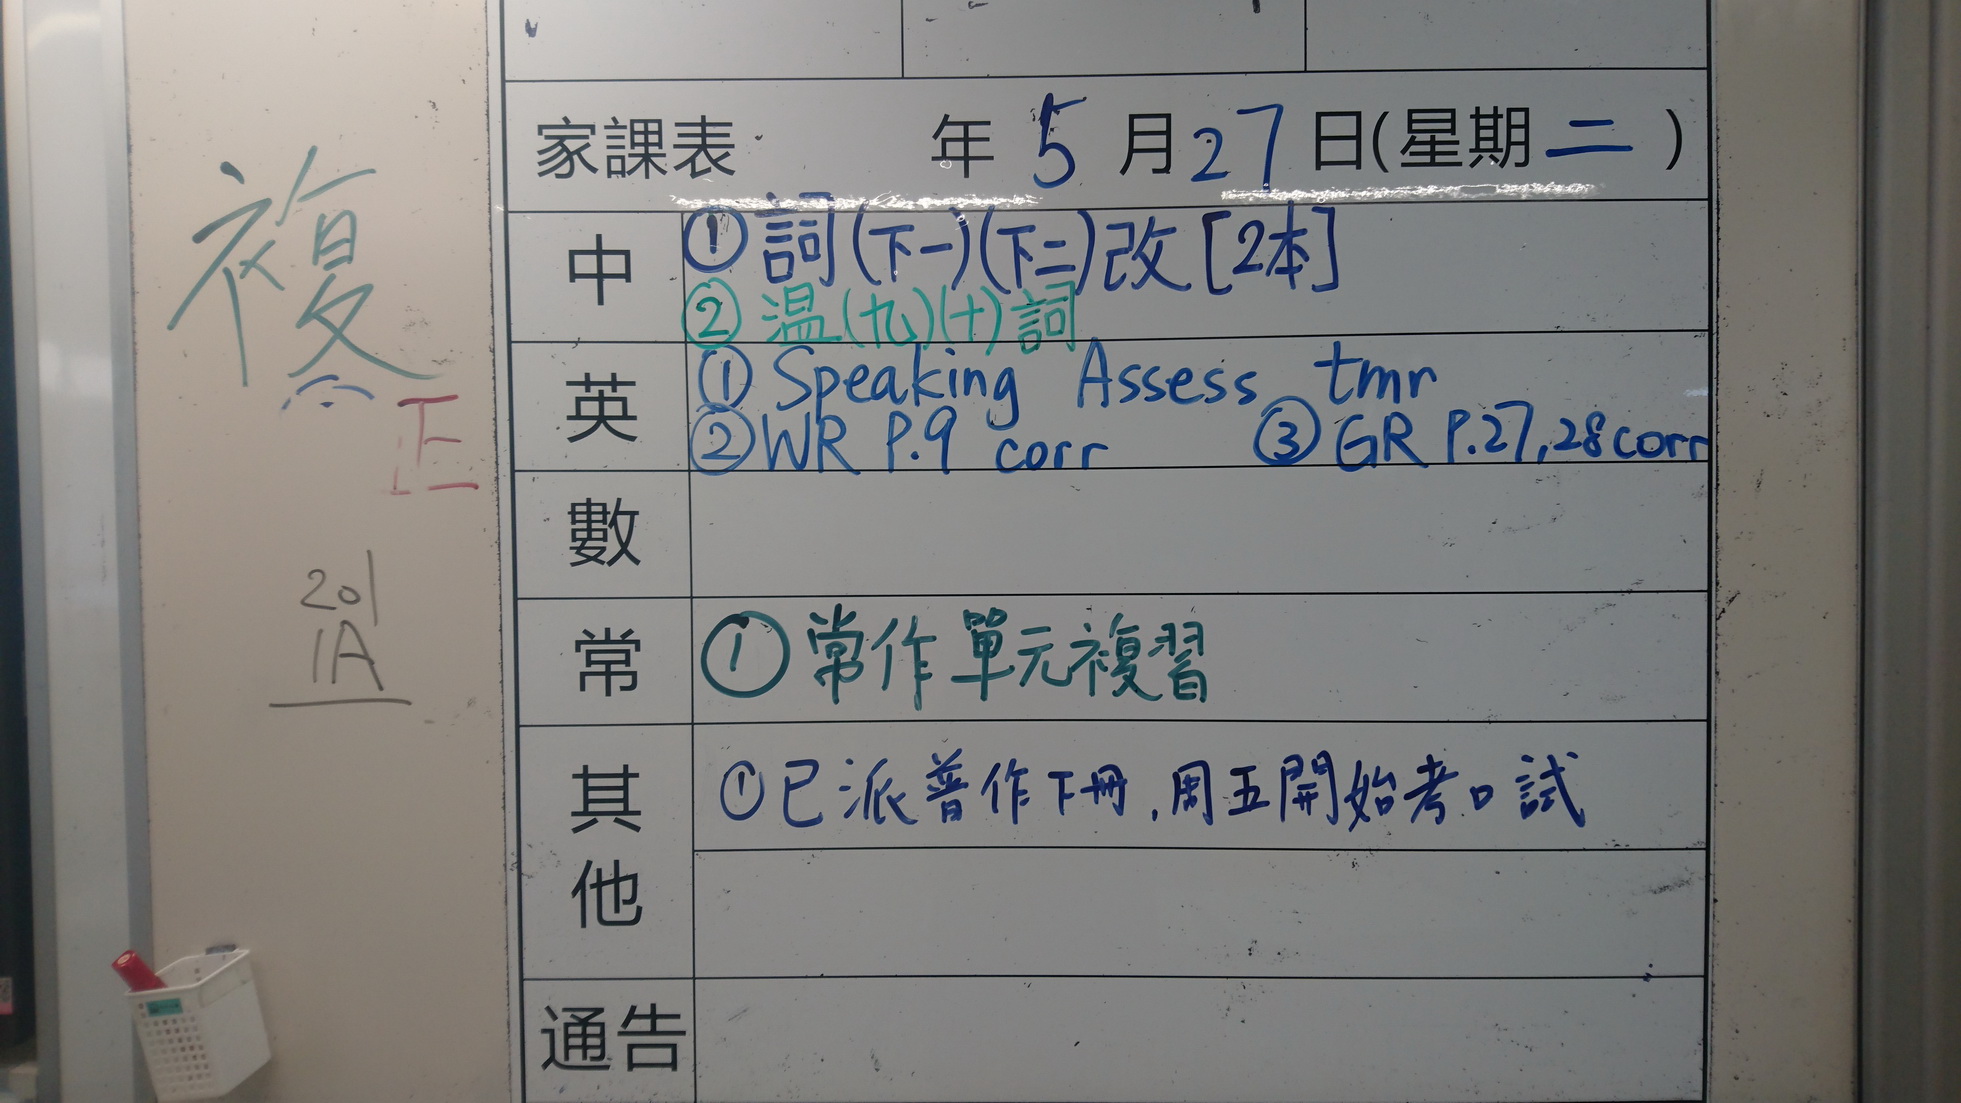 家課表 年 5 月 27 日(星期 二 )
中
① 詞(下一)(下二)改[2本]
② 溫(九)(十)詞
英
① Speaking Assess tmr
② WR P.9 corr ③ GR P.27,28 corr
數
常
① 常作單元複習
其他
① 已派普作下冊,周五開始考口試
通告
複
正
201
1A